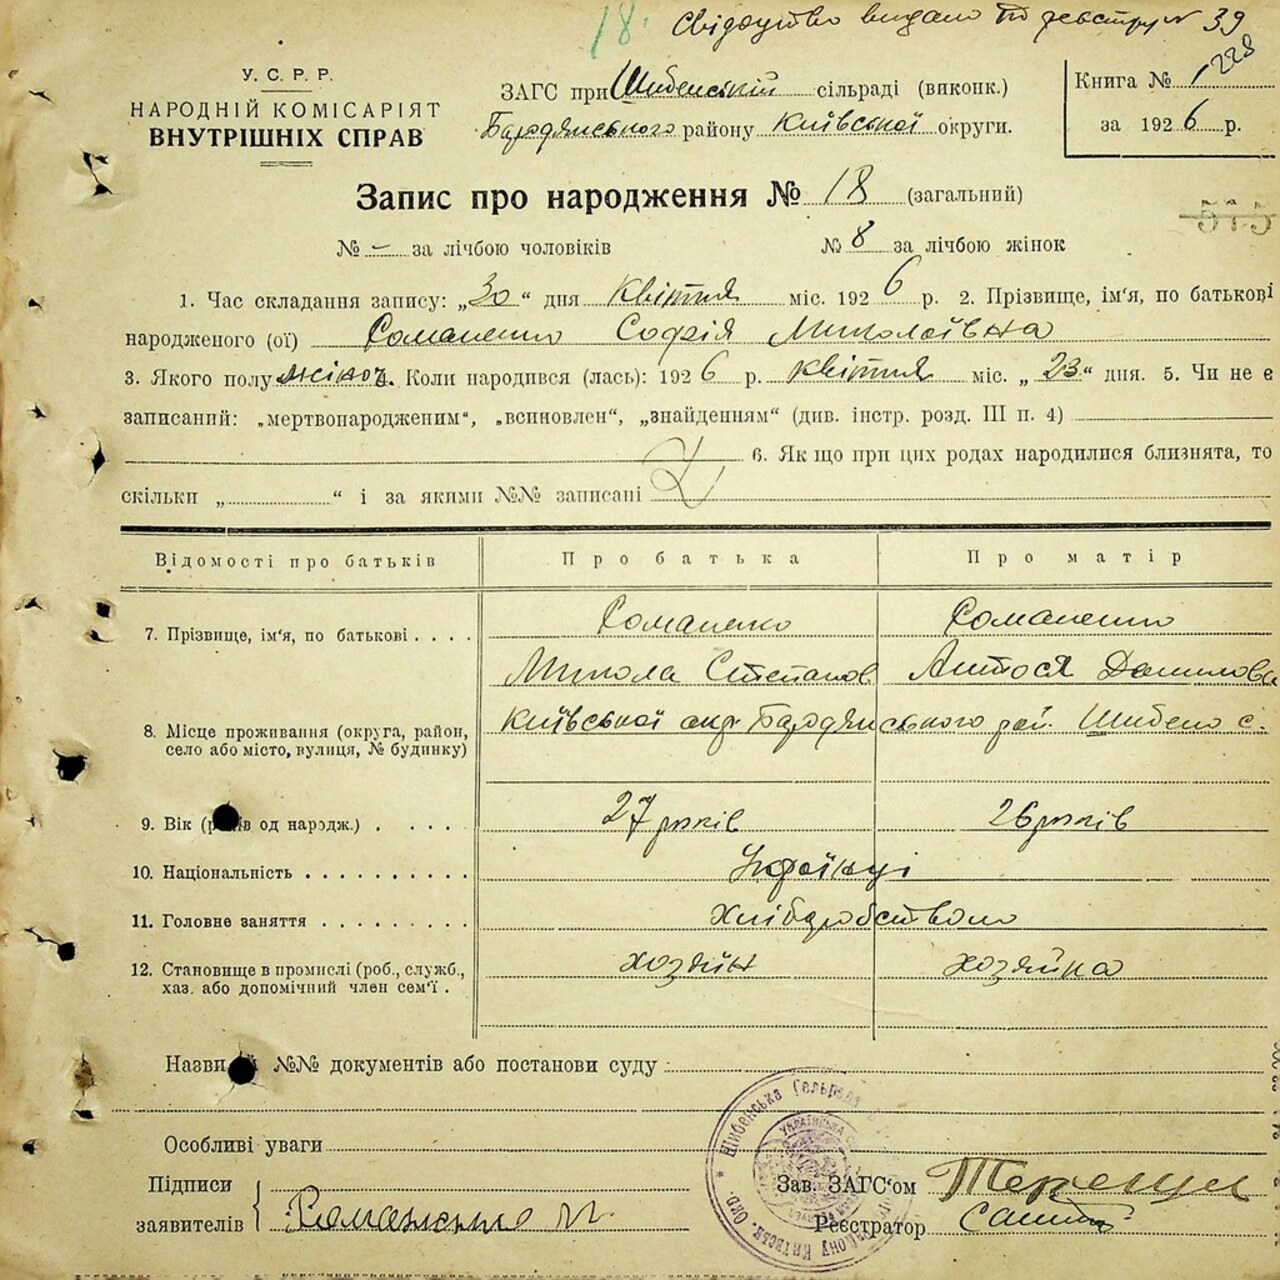 18. Свідоцтво видано по реєстру № 39
У. С. Р. Р.
НАРОДНІЙ КОМІСАРІЯТ
ВНУТРІШНІХ СПРАВ
ЗАГС при Шибенській сільраді (виконк.)
Бородянського району Київської округи.
Книга № 1 228
за 1926 р.
Запис про народження № 18 (загальний)
575
№ – за лічбою чоловіків № 8 за лічбою жінок
1. Час складання запису: „30“ дня квітня міс. 1926 р. 2. Прізвище, ім'я, по батькові
народженого (ої) Романенко Софія Миколаївна
3. Якого полу жіноч. 4. Коли народився (лась): 1926 р. квітня міс. „23“ дня. 5. Чи не є
записаний: „мертвонародженим“, „всиновлен“, „знайденням“ (див. інстр. розд. III п. 4)
6. Як що при цих родах народилися близнята, то
скільки „ “ і за якими №№ записані
Відомості про батьків Про батька Про матір
7. Прізвище, ім'я, по батькові . . . . Романенко Романенко
Микола Степанов Антося Данилова
8. Місце проживання (округа, район, Київської окр. Бородянського рай. Шибено с.
село або місто, вулиця, № будинку)
9. Вік (років од народж.) . . . . 27 років 26 років
10. Національність . . . . . . . . . . Українці
11. Головне заняття . . . . . . . . . Хліборобством
12. Становище в промислі (роб., служб., хозяїн хозяйка
хаз. або допомічний член сем'ї .
Назви й №№ документів або постанови суду
Особливі уваги
Підписи
заявителів Романенко М.
Зав. ЗАГС'ом
Реєстратор
Шибенська Сельрада
району Київськ. Окр.